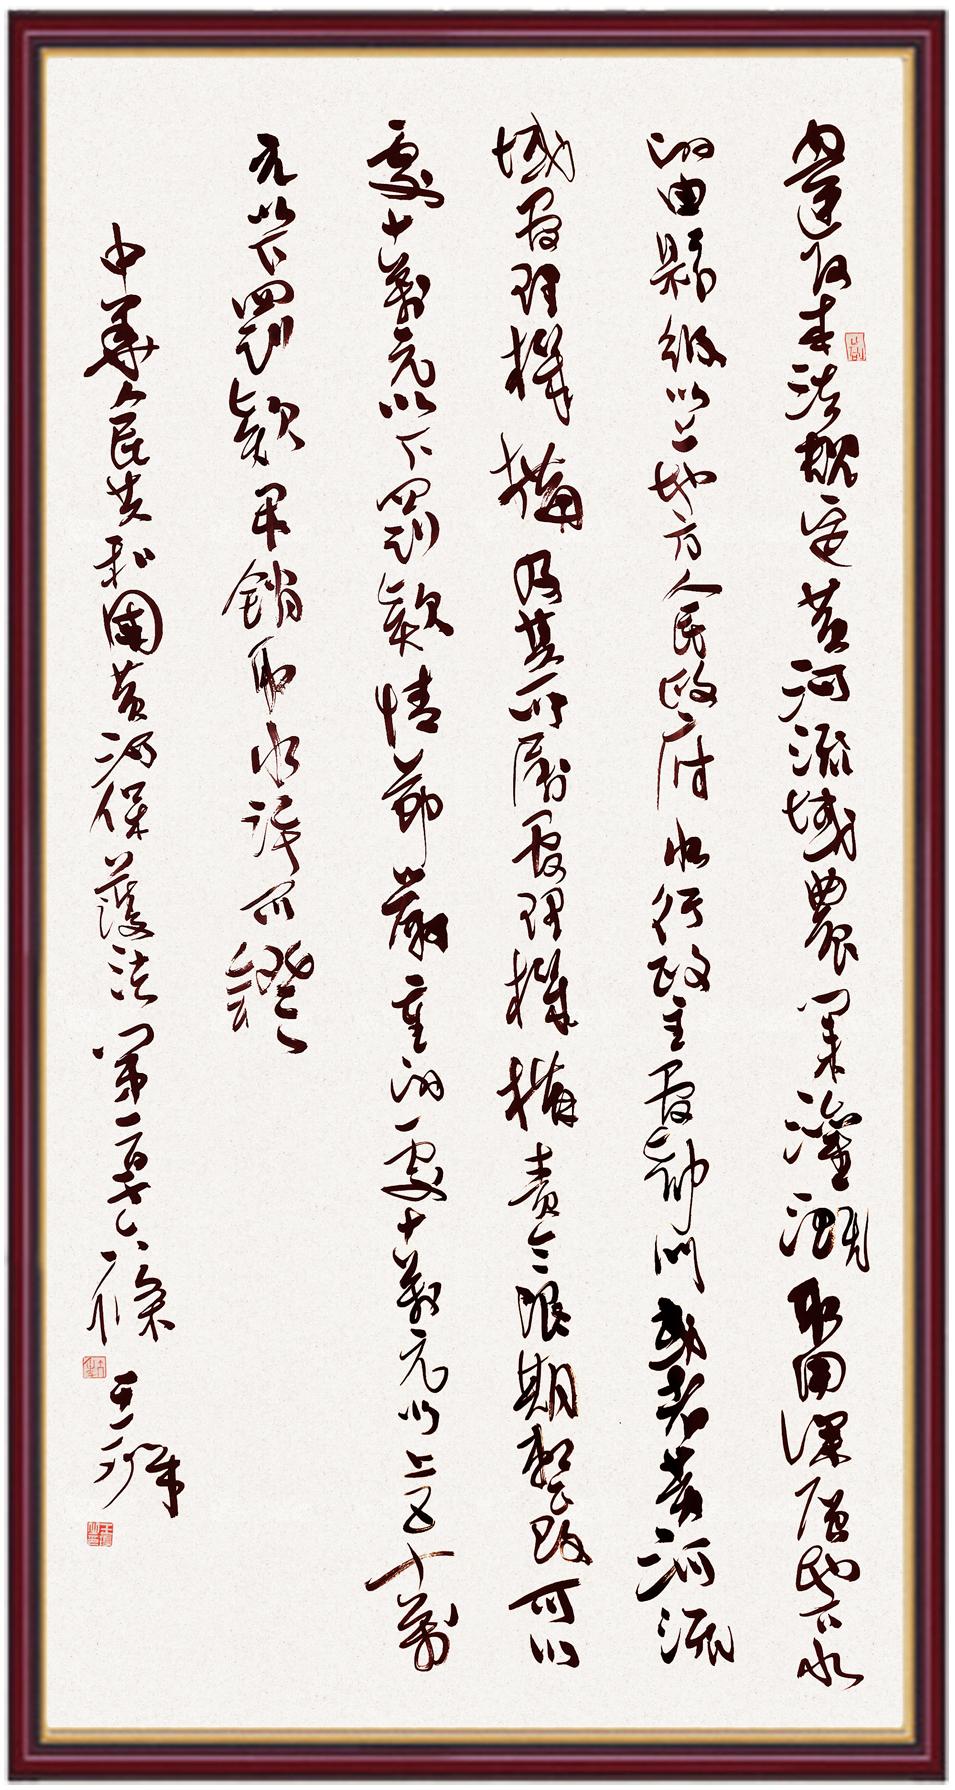 違反本法規定黃河流域農業灌溉取用深層地下水
的由縣級以上地方人民政府水行政主管部門或者黃河流
域管理機構及其所屬管理機構責令限期整改可以
處十萬元以下罰款情節嚴重的處十萬元以上五十萬
元以下罰款吊銷取水許可證
中華人民共和國黃河保護法第一百一十六條